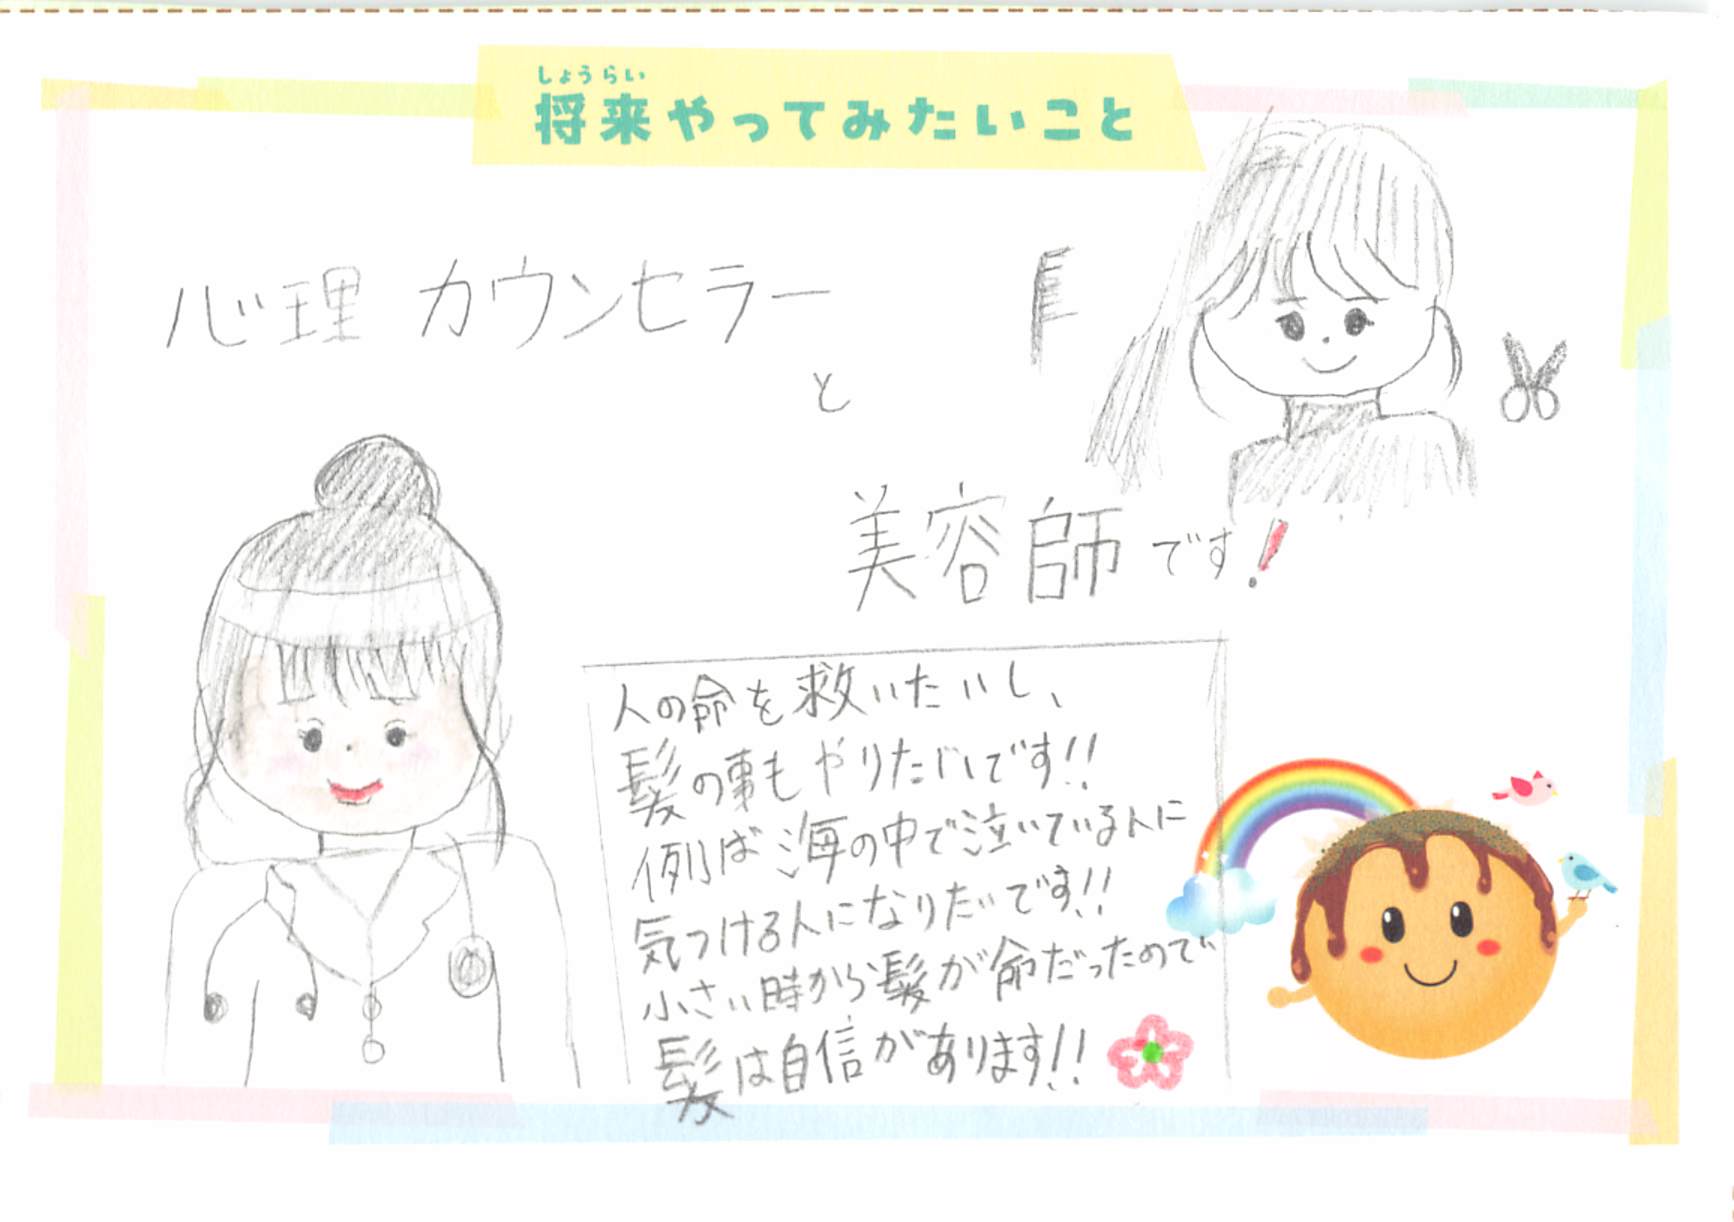 しょうらい
将来やってみたいこと
心理カウンセラー
と
美容師です!
人の命を救いたいし、
髪の事もやりたいです!!
例ば海の中で泣いている人に
気つける人になりたいです!!
小さい時から髪が命だったので
髪は自信があります!!